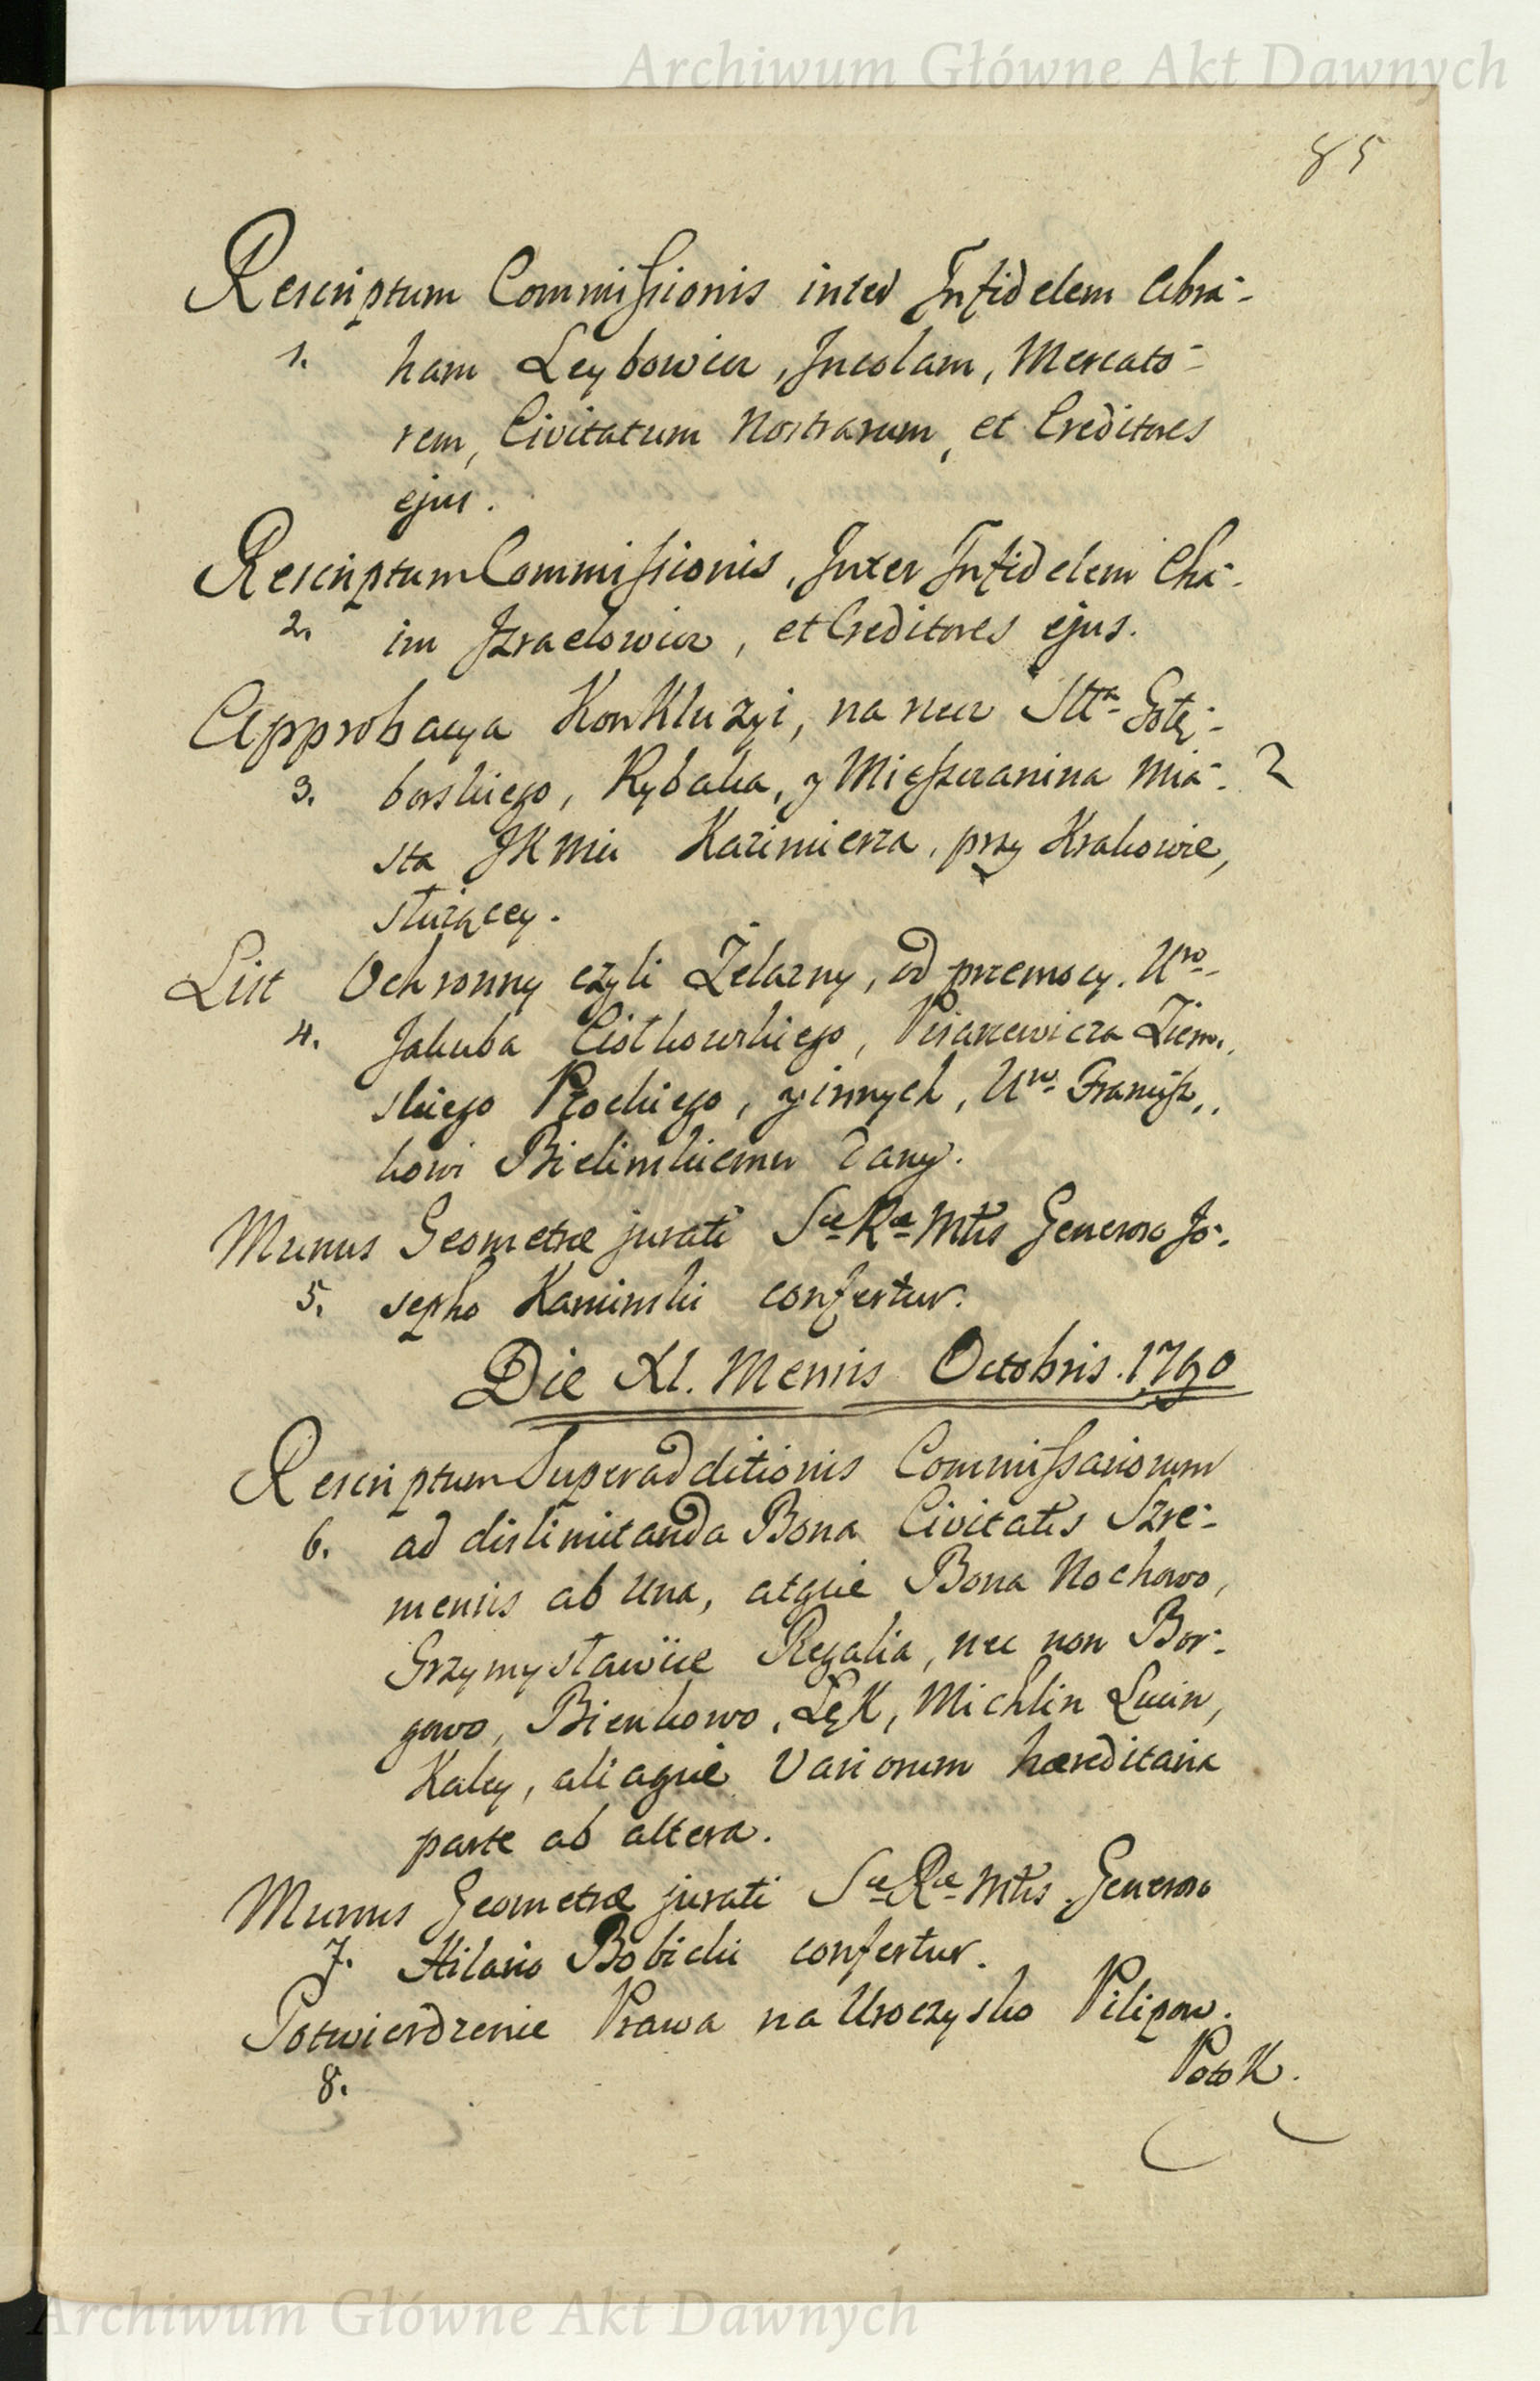 Archiwum Główne Akt Dawnych
85
Rescriptum Commissionis inter Infidelem Abra-
1. ham Leybowicz, Incolam, Mercato-
rem, Civitatum Nostrarum, et Creditores
ejus.
Rescriptum Commissionis, Inter Infidelem Cha-
2. im Izraelowicz, et Creditores ejus.
Approbacya Konkluzyi, na rzecz Stta Gołę-
3. borskiego, Rybaka, y Mieszczanina Mia- 2
sta JKMci Kazimierza, przy Krakowie,
służącey.
List Ochronny czyli Żelazny, od przemocy. Uro
4. Jakuba Ciołkowskiego, Pisarzewicza Ziem,,
skiego Płockiego, y innych, Uro Francisz,,
kowi Bielinskiemu dany.
Munus Geometræ jurati Sæ Ræ Mtis Generoso Jo-
5. sepho Kaminski confertur.
Die XI. Mensis Octobris. 1790
Rescriptum Superadditionis Commissariorum
6. ad dislimitanda Bona Civitatis Szre-
mensis ab una, atque Bona Nochowo,
Grzymysławice Regalia, nec non Bor-
gowo, Bienkowo, Łęk, Michlin Lucin,
Kaley, aliaque Variorum hæreditaria
parte ab altera.
Munus Geometræ jurati Sæ Ræ Mtis Generoso
7. Hilario Bobicki confertur.
Potwierdzenie Prawa na Uroczysko Pilipow.
8. Potok.
Archiwum Główne Akt Dawnych